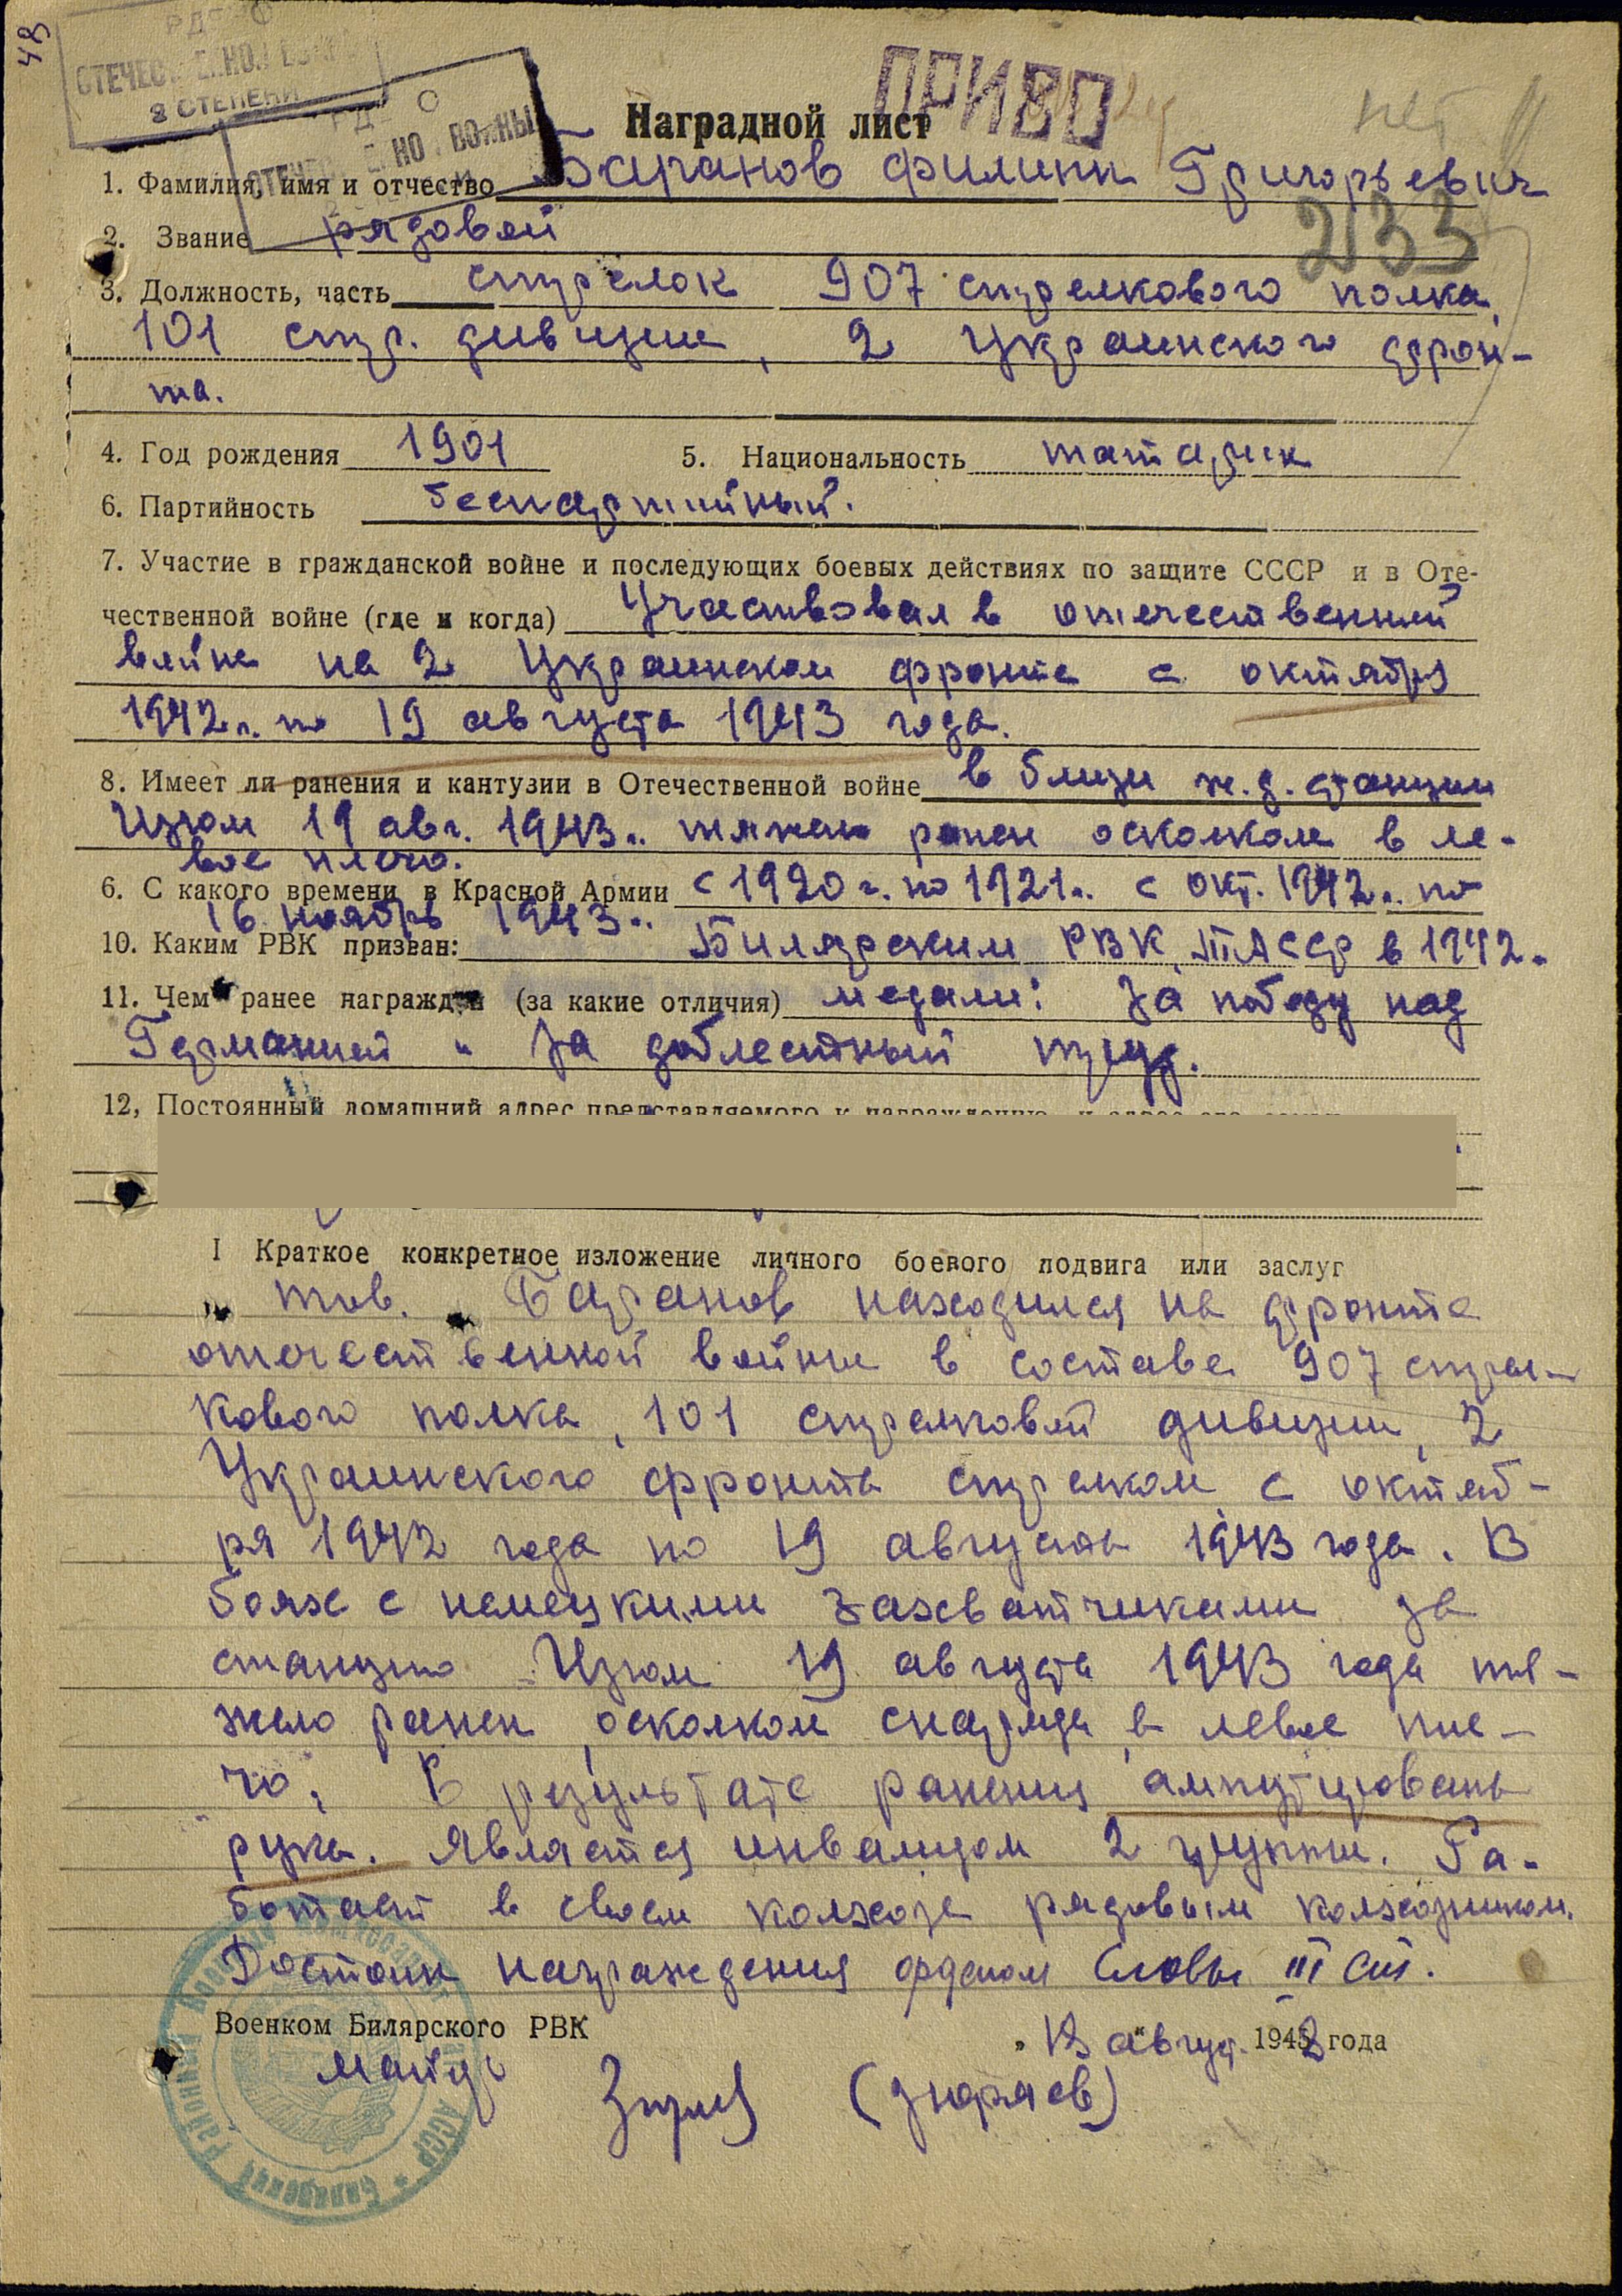 48
ОТЕЧЕСТВЕННОЙ ВОЙНЫ
2 СТЕПЕНИ
ОТЕЧЕСТВЕННОЙ ВОЙНЫ
ПРИВО
нет
Наградной лист
1. Фамилия, имя и отчество Баранов Филипп Григорьевич
233
2. Звание рядовой
3. Должность, часть стрелок 907 стрелкового полка,
101 стр. дивизии, 2 Украинского фрон-
та.
4. Год рождения 1901 5. Национальность татарин
6. Партийность беспартийный.
7. Участие в гражданской войне и последующих боевых действиях по защите СССР и в Оте-
чественной войне (где и когда) Участвовал в отечественной
войне на 2 Украинском фронте с октября
1942г. по 19 августа 1943 года.
8. Имеет ли ранения и кантузии в Отечественной войне в близи ж.д. станции
Изюм 19 авг. 1943г. тяжело ранен осколком в ле-
вое плечо.
6. С какого времени в Красной Армии с 1920г. по 1921г. с окт. 1942г. по
16 ноябрь 1943г.
10. Каким РВК призван: Билярским РВК, ТАССР в 1942г.
11. Чем ранее награжден (за какие отличия) медали: За победу над
Германией " За доблестный труд.
12, Постоянный домашний адрес представляемого к награждению и адрес его семьи
I Краткое конкретное изложение личного боевого подвига или заслуг
тов. Баранов находился на фронте
отечественной войны в составе 907 стрел-
кового полка, 101 стрелковой дивизии, 2
Украинского фронта стрелком с октяб-
ря 1942 года по 19 августа 1943 года. В
боях с немецкими захватчиками за
станцию Изюм 19 августа 1943 года тя-
жело ранен осколком снаряда в левое пле-
чо. В результате ранения ампутирована
рука. Является инвалидом 2 группы. Ра-
ботает в своем колхозе рядовым колхозником.
Достоин награждения орденом Славы III ст.
Военком Билярского РВК
" 13 " август. 1948 года
майор
(Зюряев)